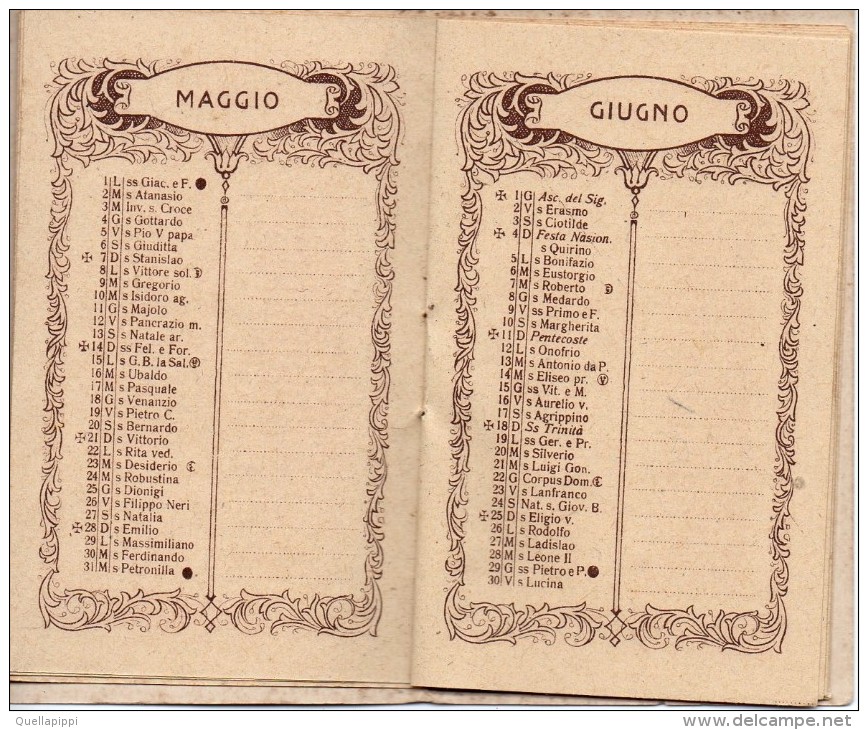 MAGGIO
1 L ss Giac. e F.
2 M s Atanasio
3 M Inv. s. Croce
4 G s Gottardo
5 V s Pio V papa
6 S s Giuditta
✠ 7 D s Stanislao
8 L s Vittore sol.
9 M s Gregorio
10 M s Isidoro ag.
11 G s Majolo
12 V s Pancrazio m.
13 S s Natale ar.
✠ 14 D ss Fel. e For.
15 L s G.B. la Sal.
16 M s Ubaldo
17 M s Pasquale
18 G s Venanzio
19 V s Pietro C.
20 S s Bernardo
✠ 21 D s Vittorio
22 L s Rita ved.
23 M s Desiderio
24 M s Robustina
25 G s Dionigi
26 V s Filippo Neri
27 S s Natalia
✠ 28 D s Emilio
29 L s Massimiliano
30 M s Ferdinando
31 M s Petronilla
GIUGNO
✠ 1 G Asc. del Sig.
2 V s Erasmo
3 S s Clotilde
✠ 4 D Festa Násion.
s Quirino
5 L s Bonifazio
6 M s Eustorgio
7 M s Roberto
8 G s Medardo
9 V ss Primo e F.
10 S s Margherita
✠ 11 D Pentecoste
12 L s Onofrio
13 M s Antonio da P.
14 M s Eliseo pr.
15 G ss Vit. e M.
16 V s Aurelio v.
17 S s Agrippino
✠ 18 D Ss Trinità
19 L ss Ger. e Pr.
20 M s Silverio
21 M s Luigi Gon.
22 G Corpus Dom.
23 V s Lanfranco
24 S Nat. s. Giov. B.
✠ 25 D s Eligio v.
26 L s Rodolfo
27 M s Ladislao
28 M s Leone II
29 G ss Pietro e P.
30 V s Lucina
Quellapippi
www.delcampe.net